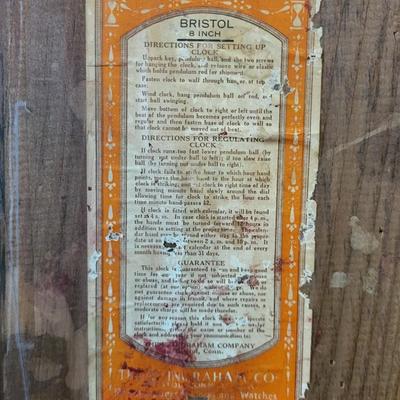 BRISTOL
8 INCH
DIRECTIONS FOR SETTING UP
CLOCK
Unpack key, pendulum ball, and the two screws
for hanging the clock, and remove wire or elastic
which holds pendulum rod for shipment.
Fasten clock to wall through hanger, at top
case.
Wind clock, hang pendulum ball on rod, and
start ball swinging.
Move bottom of clock to right or left until the
beat of the pendulum becomes perfectly even and
regular and then fasten base of clock to wall so
that clock cannot be moved out of beat.
DIRECTIONS FOR REGULATING
CLOCK
If clock runs too fast lower pendulum ball (by
turning nut under ball to left); if too slow raise
ball (by turning nut under ball to right).
If clock fails to strike hour to which hour hand
points, move the hour hand to the hour at which
clock is striking, and set clock to right time of day
by moving minute hand slowly around the dial
allowing time for clock to strike the hour each
time minute hand passes 12.
If clock is fitted with calendar, it will be found
set at 4 a. m. In case clock is started after 4 p. m.,
the hands must be turned forward 12 hours in
addition to setting at the proper time. The calen-
dar hand may be moved either way to the proper
date at any between 2 a. m. and 10 p. m. It
is necessary to set calendar at the end of every
month having less than 31 days.
GUARANTEE
This clock is guaranteed to run and keep good
time for one year if not subjected to misuse
or abuse, and failing to do so will be
replaced (at our option) without charge. We do
not guarantee clock against misuse or abuse, nor
against damage in transit, and where repairs or
replacements are required due to such causes, a
moderate charge will be made therefor.
If for any reason this clock does not operate
satisfactorily, please hold it and write for
instructions, giving the name or number of the
clock and addressing your communication to:
THE E. INGRAHAM COMPANY
Bristol, Conn.
THE E. INGRAHAM CO.
and Watches